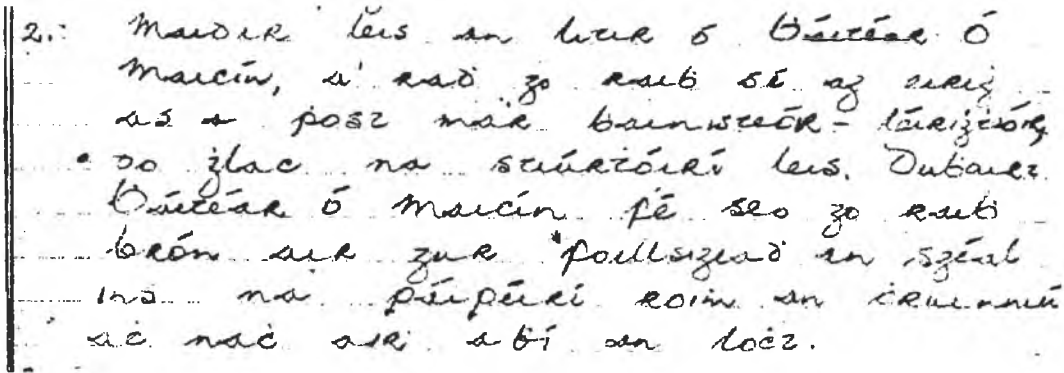 2. Maidir leis an litir ó Ḃáitéar Ó
Maicín, a' rád go raiḃ sé ag éirig
as a post mar bainisteóir - láiriġṫeóir,
do ġlac na stiúrṫóirí leis. Duḃairt
Ḃáitéar Ó Maicín fé seo go raiḃ
brón air gur foillsigeaḋ an sgéal
ins na páipéirí roiṁ an ċruinniú
aċ naċ air a ḃí an loċt.